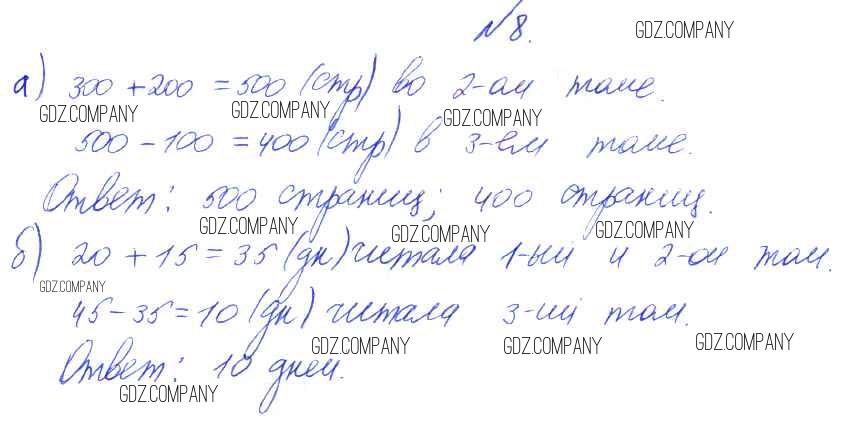 №8. GDZ.COMPANY
а) 300 + 200 = 500 (стр) во 2-ом томе.
GDZ.COMPANY GDZ.COMPANY GDZ.COMPANY
500 - 100 = 400 (стр) в 3-ем томе.
Ответ: 500 страниц; 400 страниц.
GDZ.COMPANY GDZ.COMPANY GDZ.COMPANY
б) 20 + 15 = 35 (дн) читала 1-ый и 2-ой том.
GDZ.COMPANY
45 - 35 = 10 (дн) читала 3-ий том.
GDZ.COMPANY GDZ.COMPANY GDZ.COMPANY
Ответ: 10 дней.
GDZ.COMPANY